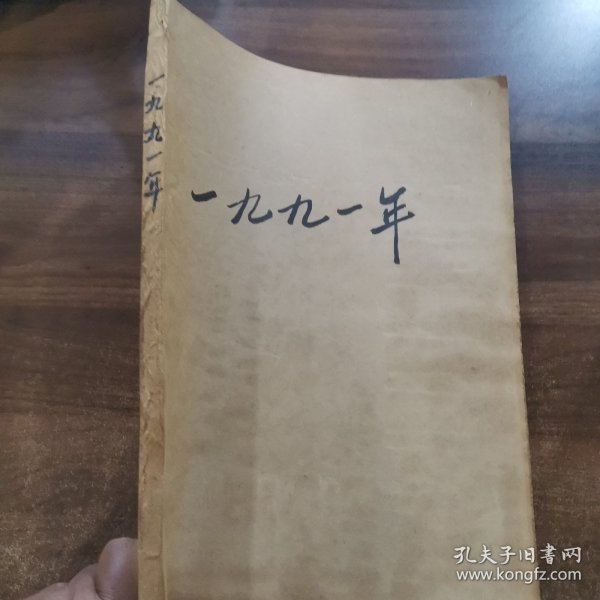 一九九一年
一九九一年
孔夫子旧書网
www.kongfz.com